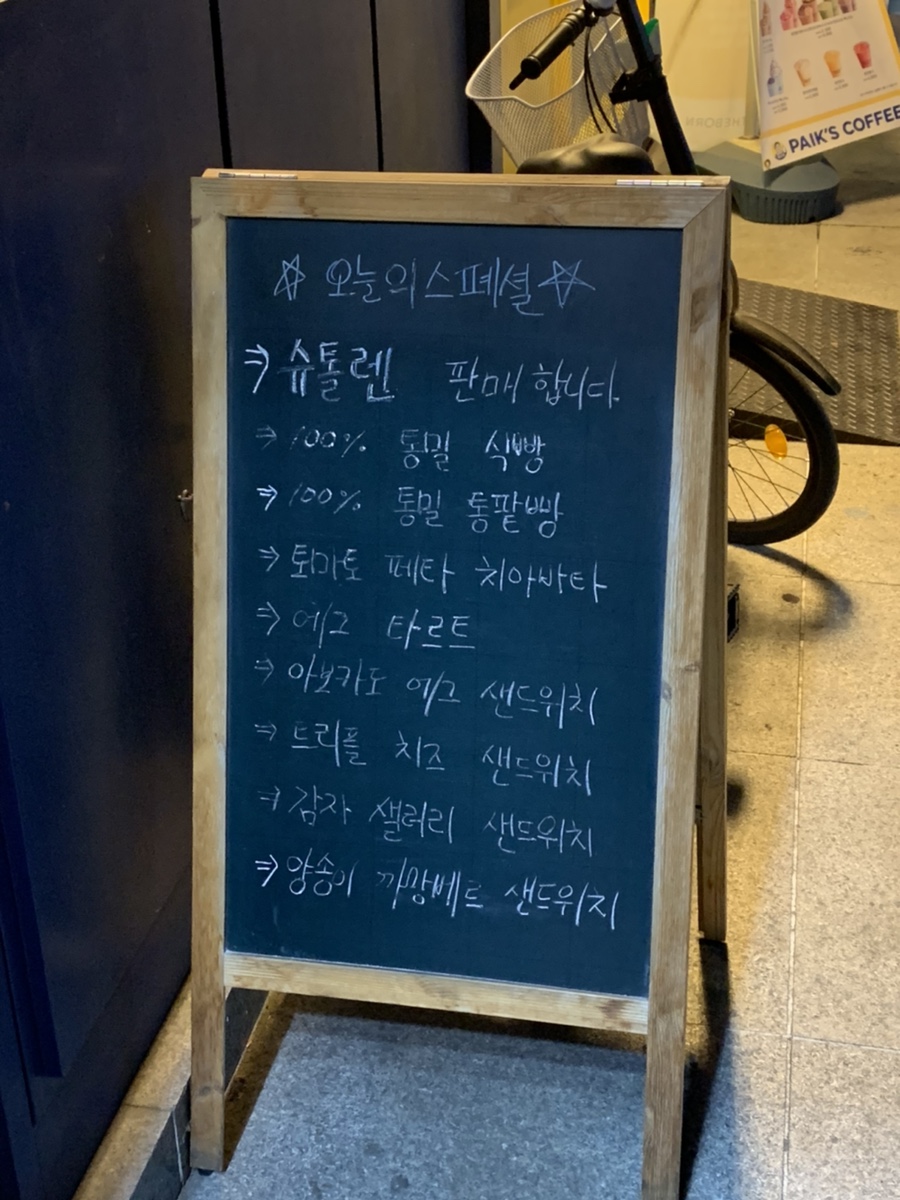 ☆ 오늘의스페셜 ☆
⇒ 슈톨렌 판매합니다.
⇒ 100% 통밀 식빵
⇒ 100% 통밀 통팥빵
⇒ 토마토 페타 치아바타
⇒ 에그 타르트
⇒ 아보카도 에그 샌드위치
⇒ 트리플 치즈 샌드위치
⇒ 감자 샐러리 샌드위치
⇒ 양송이 까망베르 샌드위치
PAIK'S COFFEE